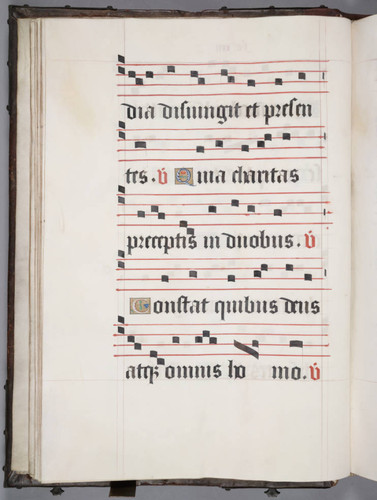 dia disiungit et presen
tes. v Quia charitas
preceptis in duobus. v
Constat quibus deus
atqz omnis ho mo. v